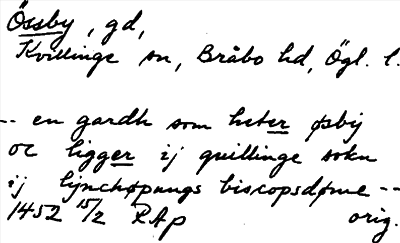 Össby, gd,
Kvillinge sn, Bråbo hd, Ögl. l.
-- en gardh som heter øsby
oc ligger ij quillinge sokn
ij lynchøpungs biscopsdøme --
1452 15/2 RAp orig.